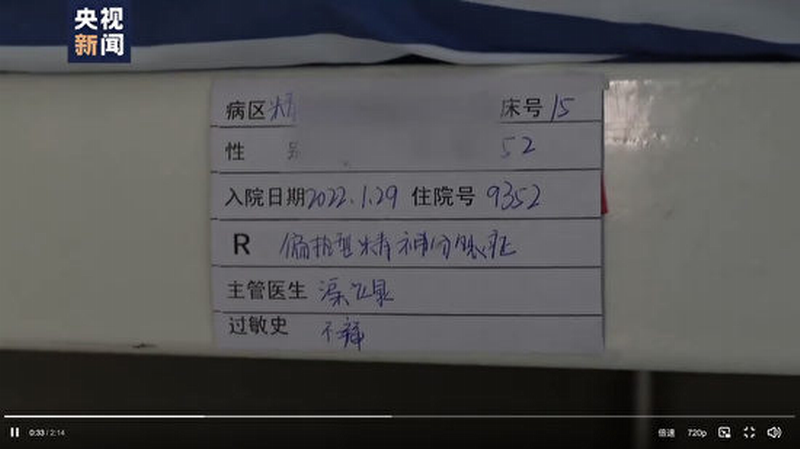 央视
新闻
病区 精 床号 15
性 别 52
入院日期 2022.1.29 住院号 9352
R 偏执型精神分裂症
主管医生
过敏史 不详
0:33 / 2:14 倍速 720p